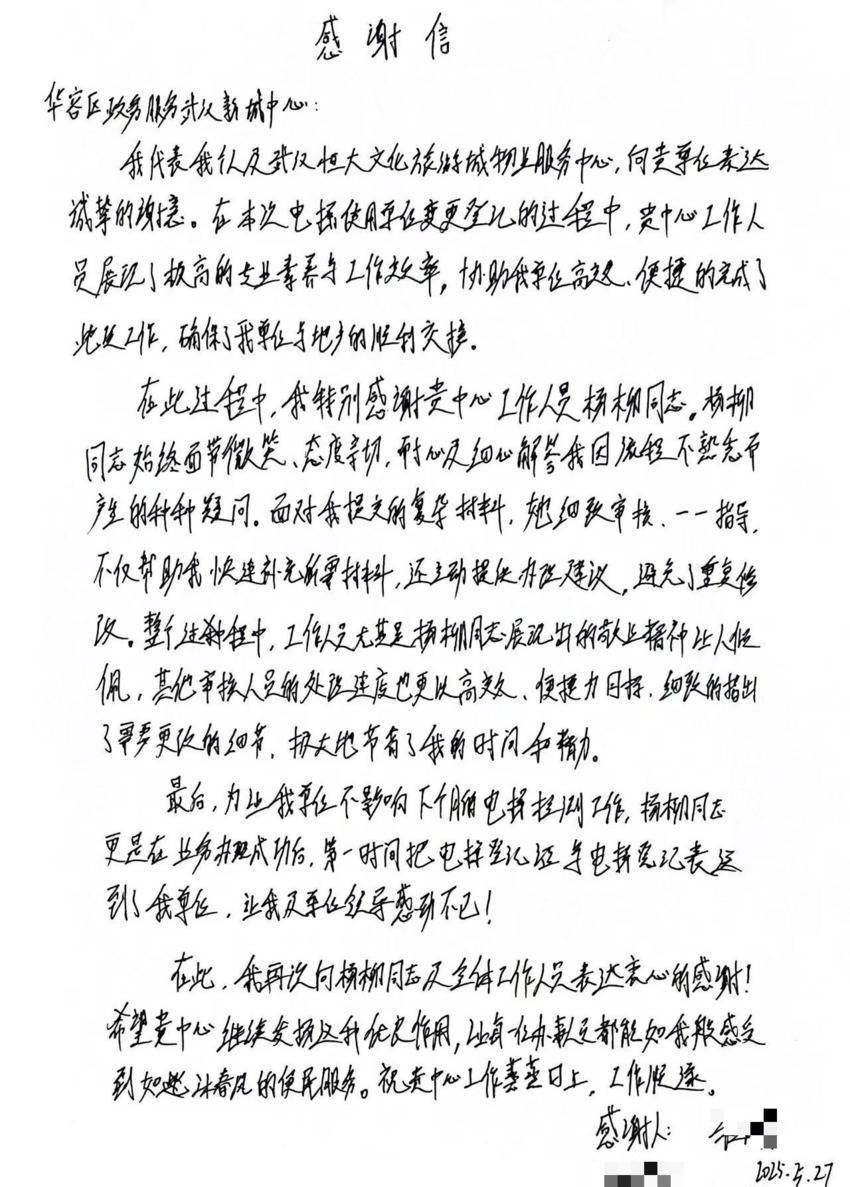 感谢信
华容区政务服务武汉新城中心:
我代表我个人及武汉恒大文化旅游城物业服务中心,向贵单位表达
诚挚的谢意。在本次电梯使用单位变更登记的过程中,贵中心工作人
员展现了极高的专业素养与工作效率,协助我单位高效、便捷的完成了
此处工作,确保了我单位与地产的胜利交接。
在此过程中,我特别感谢贵中心工作人员杨柳同志。杨柳
同志始终面带微笑、态度亲切,耐心及细心解答我因流程不熟悉而
产生的种种疑问。面对我提交的复杂材料,她细致审核、一一指导,
不仅帮助我快速补充所需材料,还主动提供办理建议,避免了重复修
改。整个过程中,工作人员尤其是杨柳同志展现出的敬业精神让人钦
佩,其他审核人员的处理速度也更以高效、便捷为目标,细致的指出
了需要更改的细节,极大地节省了我的时间和精力。
最后,为让我单位不影响下个月的电梯检测工作,杨柳同志
更是在业务办理成功后,第一时间把电梯登记证与电梯登记表送
到了我单位,让我及单位领导感动不已!
在此,我再次向杨柳同志及全体工作人员表达衷心的感谢!
希望贵中心继续发扬这种优良作用,让每一位办事人员都能如我般感受
到如沐春风的便民服务。祝贵中心工作蒸蒸日上,工作顺遂。
感谢人:
2025.5.27